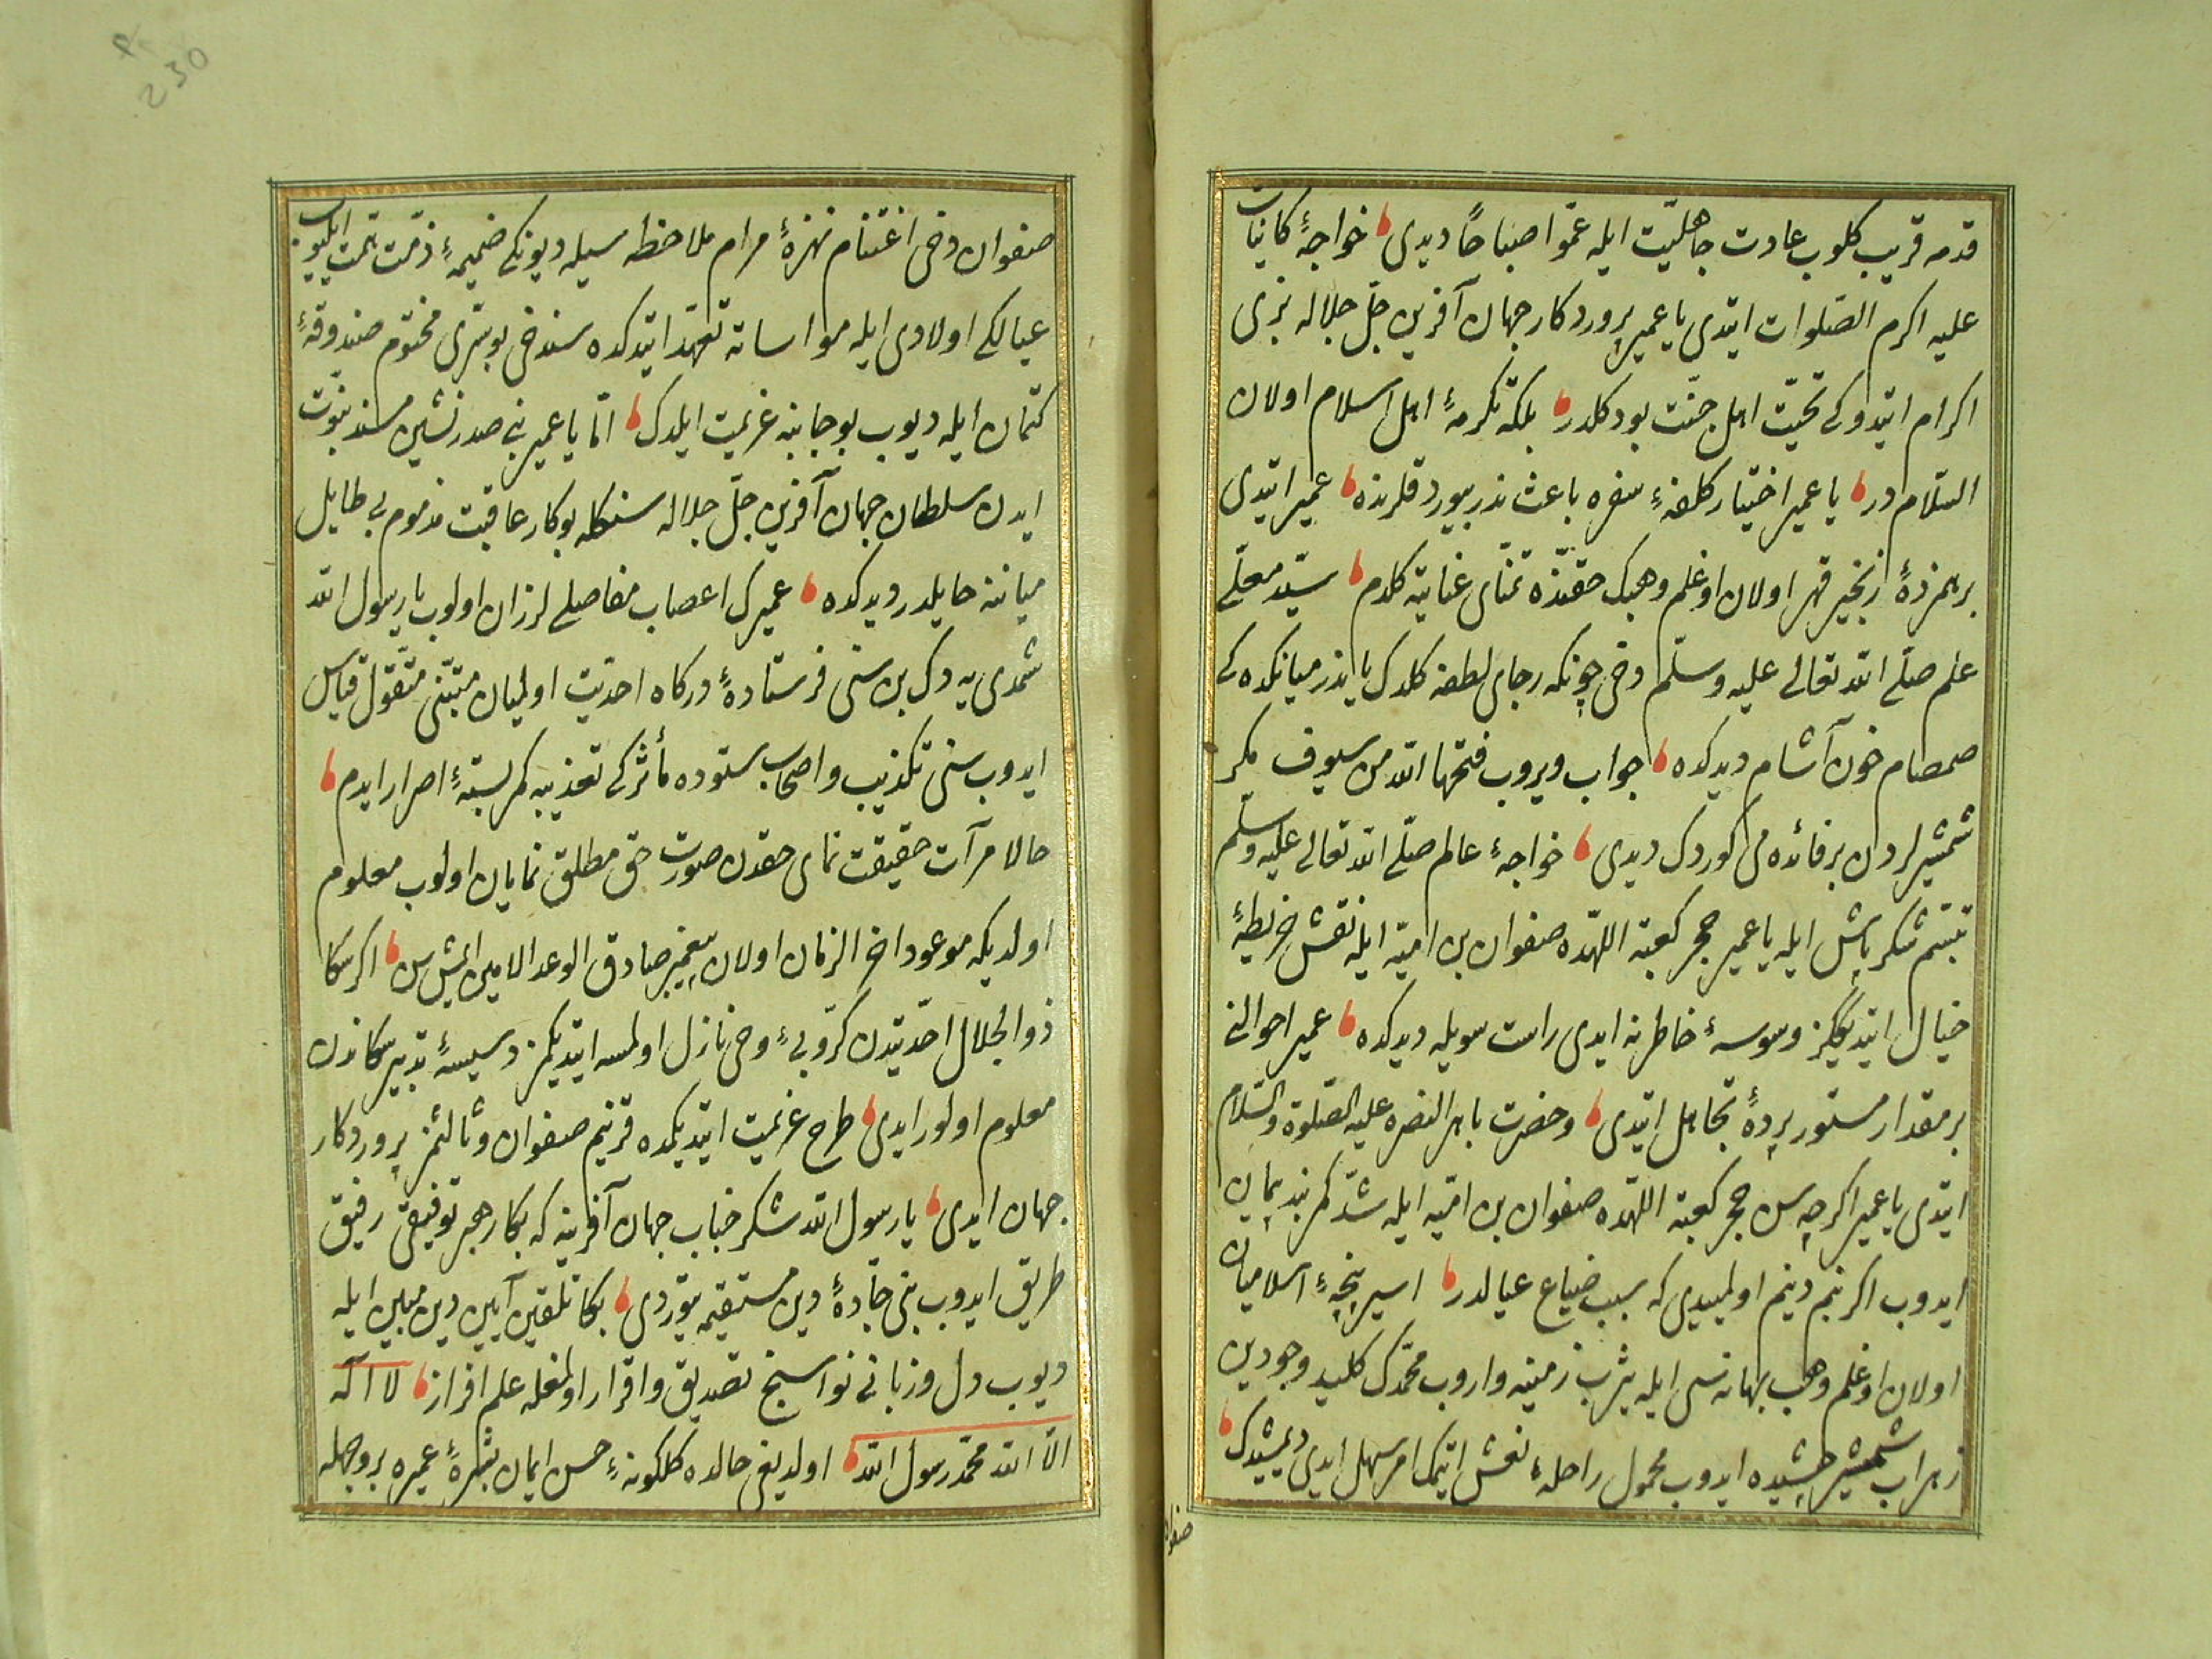 قدمه قریب کلوب عادت جاهلیّت ایله عمّوا صباحاً دیدی خواجۀ کائنات
علیه اکرم الصّلوات ایتدی یا عمیر پروردکار جهان آفرین جلّ جلاله بزی
اکرام ایتدوکی تحیّت اهل جنّت بودکلدر بلکه تکرمۀ اهل اسلام اولان
السّلام در یا عمیر اختیار کلفۀ سفره باعث ندر بیوردقلرنده عمیر ایتدی
بر همزدۀ زنجیر قهر اولان اوغلم وهبک حقّنده تمنّای عنایته کلدم سیّد معلّی
علم صلّی الله تعالی علیه وسلّم دخی چونکه رجای لطفه کلدک یا بذر میانکده کی
صمصام خون آشام دیدکده جواب ویروب فتحها الله من سیوف مکر
شمشیرلردن بر فائده می کوردک دیدی خواجۀ عالم صلّی الله تعالی علیه وسلّم
تبسّم شکر پاش ایله یا عمیر حجر کعبة اللّهده صفوان بن امیّه ایله نقش خریطۀ
خیال ایتدیککز وسوسۀ خاطر نه ایدی راست سویله دیدکده عمیر احوالنی
بر مقدار مستور پردۀ تجاهل ایتدی وحضرت باهر النصره علیه الصّلوة والسّلام
ایتدی یا عمیر اکرچه سن حجر کعبة اللّهده صفوان بن امیّه ایله شدّ کمربند پیمان
ایدوب اکر بنم دینم اولمیدی که سبب ضیاع عیالدر اسیر پنجۀ اسلامیان
اولان اوغلم وهب بهانه سی ایله یثرب زمینه واروب محمّدک کلید وجودین
زهراب شمشیر چشیده ایدوب محمول راحلۀ نعش ایتمک امر سهل ایدی دیمشیدک
صفوان
صفوان دخی اغتنام نهزۀ مرام ملاحظه سیله دیونکی ضمیمۀ ذمّت همّت ایلیوب
عیالکی اولادی ایله مواساته تعهّد ایتدکده سندخی بو سرّی مختوم صندوقۀ
کتمان ایله دیوب بو جانبه عزیمت ایلدک امّا یا عمیر بنی صدر نشین مسند نبوّت
ایدن سلطان جهان آفرین جلّ جلاله سنکله بو کار عاقبت مذموم بی طایل
میاننه حایلدر دیدکده عمیرک اعصاب مفاصلی لرزان اولوب یا رسول الله
شمدی یه دک بن سنی فرستادۀ درکاه احدیت اولمیان متنبّی متقوّل قیاس
ایدوب سنی تکذیب واصحاب ستوده مأثرکی تعذیبه کمربستۀ اصرار ایدم
حالا مرآت حقیقت نمای حقدن صورت حق مطلق نمایان اولوب معلوم
اولدیکه موعود اخر الزمان اولان پیغمبر صادق الوعد الامین ایمش سن اکر سکا
ذوالجلال احدّیتدن کرّوبی وحی نازل اولمسه ایتدیکمز دسیسۀ تدبیر سکا ندن
معلوم اولور ایدی طرح عزیمت ایتدیکمده قرینم صفوان وثالثمز پروردکار
جهان ایدی یا رسول الله شکر جناب جهان آفرینه که بکا رهبر توفیقی رفیق
طریق ایدوب بنی جادّۀ دین مستقیمه یتوردی بکا تلقین آیین دین مبین ایله
دیوب دل وزبانی نواسنج تصدیق واقرار اولمغله علم افراز لا اله
الّا الله محمّد رسول الله اولدیغی حالده کلکونۀ حسن ایمان بشرۀ عمیره بر وجهله
230